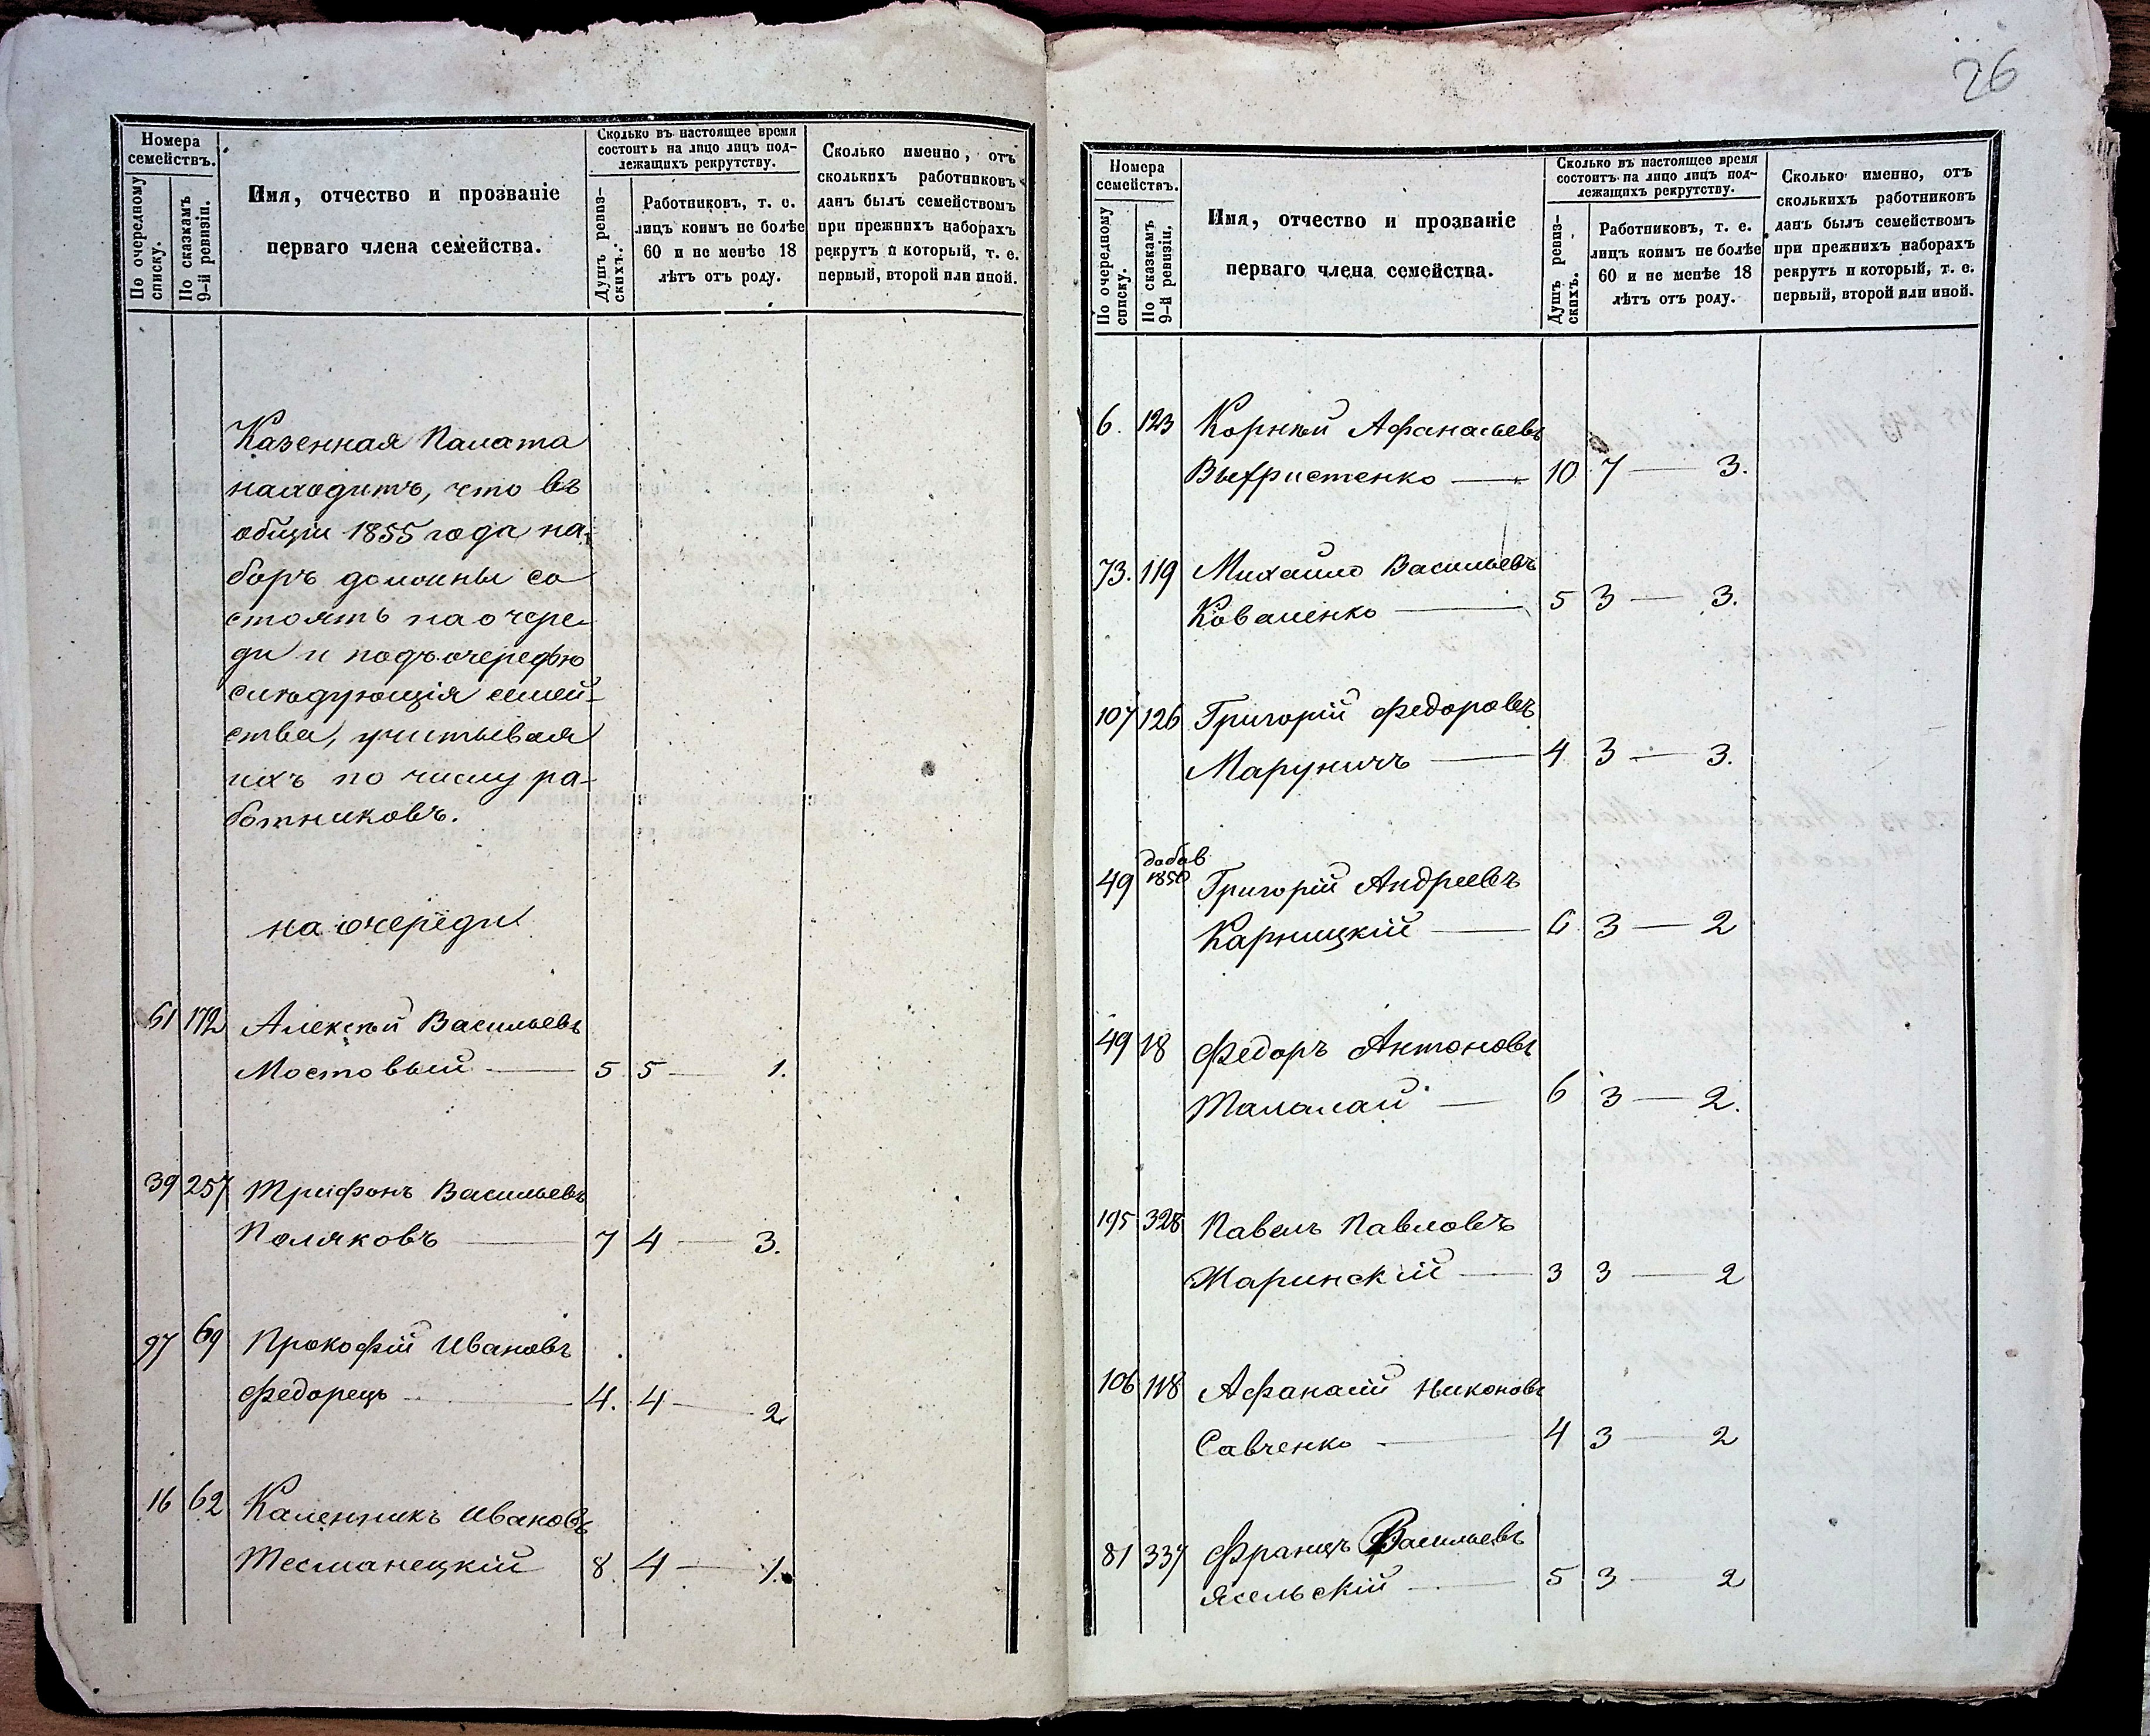 Номера семействъ.
По очередному списку.
По сказкамъ 9-й ревизіи.
Имя, отчество и прозваніе
перваго члена семейства.
Сколько въ настоящее время
состоитъ на лицо лицъ под-
лежащихъ рекрутству.
Душъ ревиз-
скихъ.
Работниковъ, т. е.
лицъ коимъ не болѣе
60 и не менѣе 18
лѣтъ отъ роду.
Сколько именно, отъ
сколькихъ работниковъ
данъ былъ семействомъ
при прежнихъ наборахъ
рекрутъ и который, т. е.
первый, второй или иной.
Казенная Палата
находитъ, что въ
общій 1855 года на-
боръ должны со
стоять на очере-
ди и подъ очередью
слѣдующія семей-
ства, учитывая
ихъ по числу ра-
ботниковъ.
на очереди
61 172 Алексѣй Васильевъ
Мостовый — 5 5 — 1.
39 257 Трифонъ Васильевъ
Поляковъ — 7 4 — 3.
97 69 Прокофій Ивановъ
Федорецъ — 4. 4 — 2
16 62 Каленникъ Ивановъ
Тесманецкій 8. 4 — 1.
26
Номера семействъ.
По очередному списку.
По сказкамъ 9-й ревизіи.
Имя, отчество и прозваніе
перваго члена семейства.
Сколько въ настоящее время
состоитъ на лицо лицъ под-
лежащихъ рекрутству.
Душъ ревиз-
скихъ.
Работниковъ, т. е.
лицъ коимъ не болѣе
60 и не менѣе 18
лѣтъ отъ роду.
Сколько именно, отъ
сколькихъ работниковъ
данъ былъ семействомъ
при прежнихъ наборахъ
рекрутъ и который, т. е.
первый, второй или иной.
6. 123 Корнѣй Афанасьевъ
— 10 7 — 3.
73. 119 Михайло Васильевъ
Коваленко — 5 3 — 3.
107 126 Григорій Федоровъ
Маруничъ — 4 3 — 3.
добав
49 1850 Григорій Андреевъ
Карницкій — 6 3 — 2
49 18 Федоръ Антоновъ
Малалай — 6 3 — 2.
195 328 Павелъ Павловъ
Маринскій — 3 3 — 2
106 118 Афанасій Никоновъ
Савченко — 4 3 — 2
81 337 Францъ Васильевъ
Ясельскій — 5 3 — 2